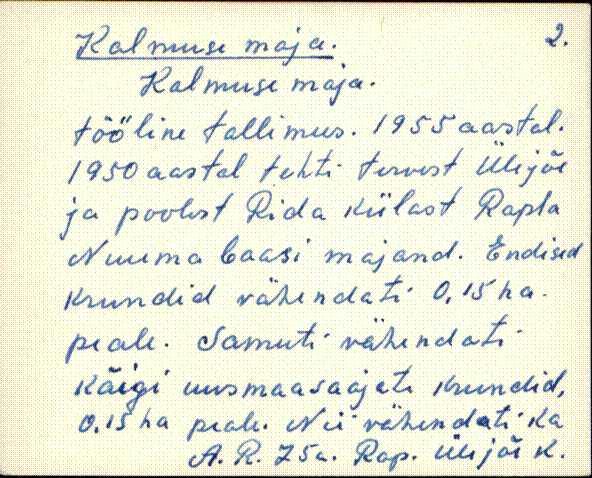 Kalmuse maja. 2.
Kalmuse maja.
tööline tallimus. 1955 aastal.
1950 aastal tehti tervest Ülijõe
ja poolest Rida külast Rapla
Nuuma baasi majand. Endised
krundid vähendati 0,15 ha.
peale. Samuti vähendati
Kõigi uusmaasaajate krundid,
0.15 ha peale. Nii vähendati ka
A. R. 75a. Rap. Ülijõe k.